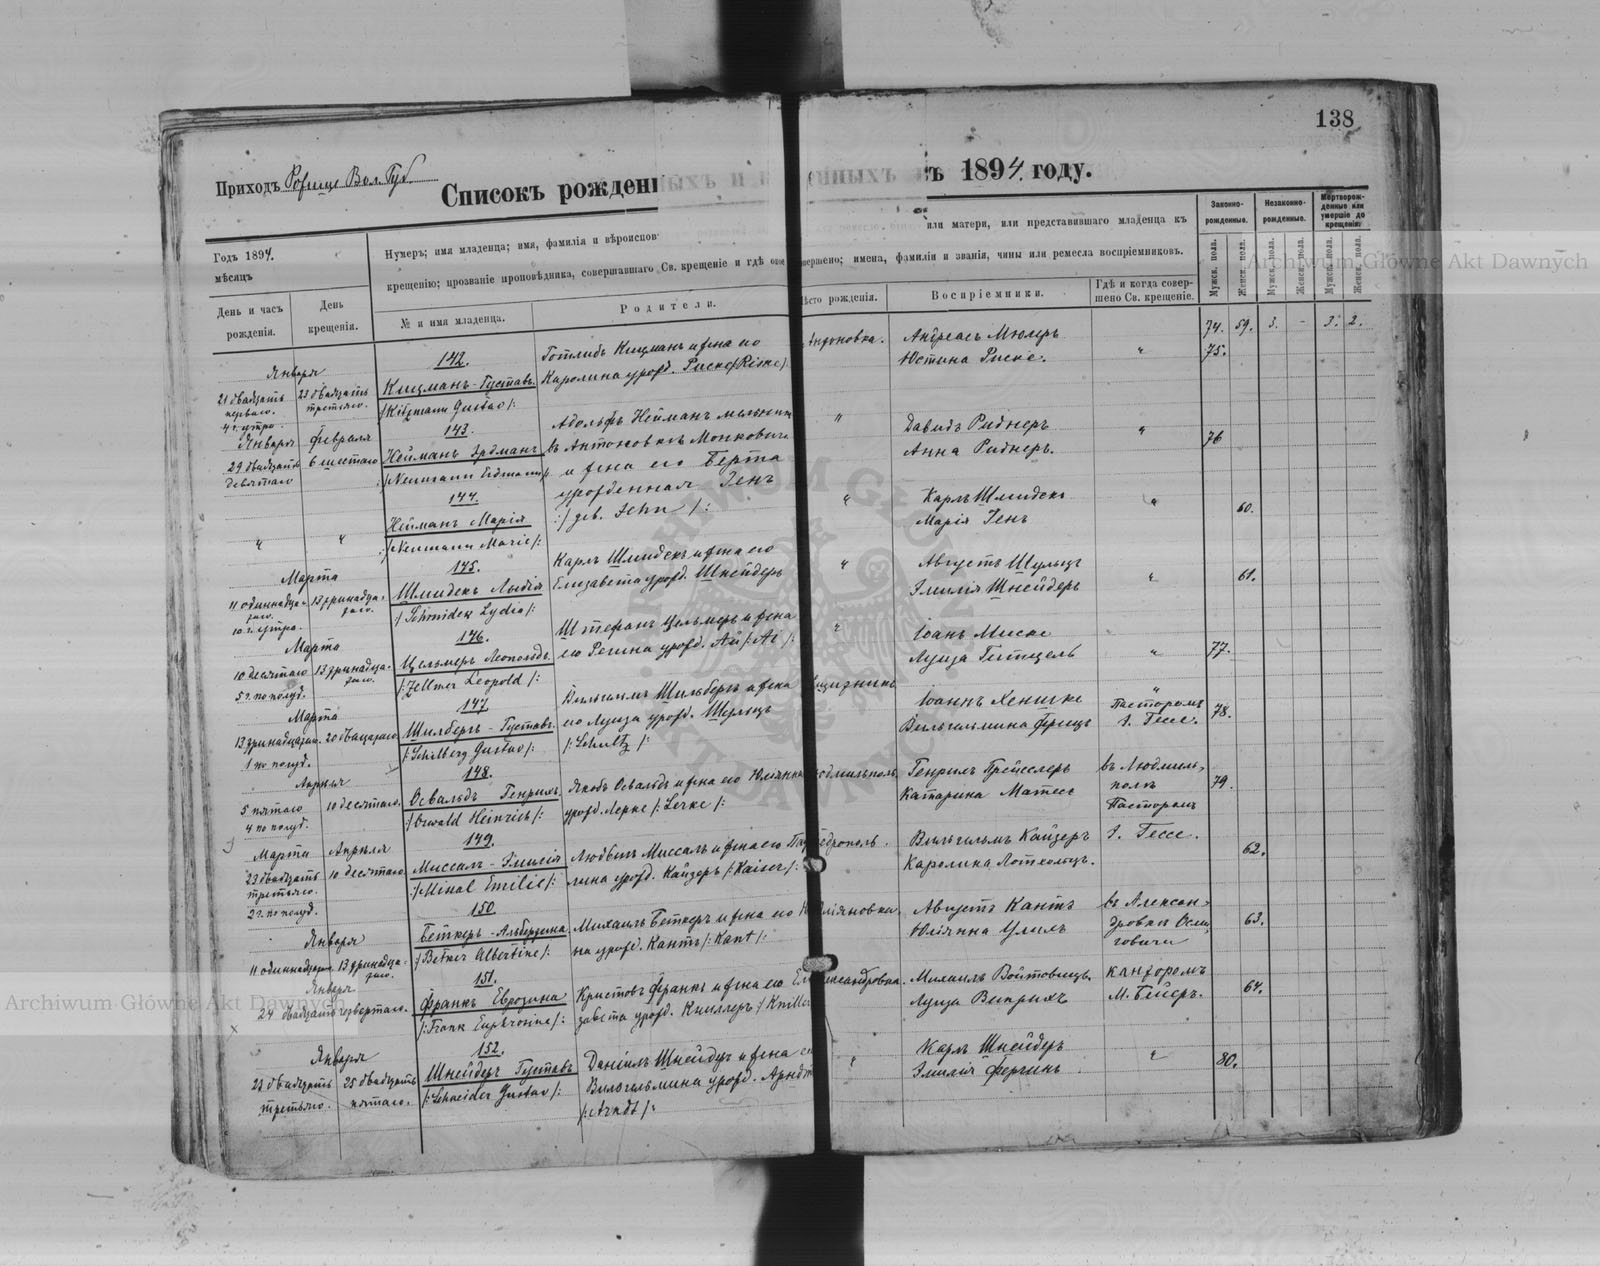 138
Приходъ Рофище Вол. Губ.
Списокъ рожден
ъ 1894 году.
Годъ 1894.
мѣсяцъ
День и часъ рожденія.
День крещенія.
Нумеръ; имя младенца; имя, фамилія и вѣроиспов
или матери, или представившаго младенца къ
крещенію; прозваніе проповѣдника, совершавшаго Св. крещеніе и гдѣ оное
вершено; имена, фамиліи и званія, чины или ремесла воспріемниковъ.
№ и имя младенца.
Родители.
мѣсто рожденія.
Воспріемники.
Гдѣ и когда совер-
шено Св. крещеніе.
Законно-
рожденные.
Незаконно-
рожденные.
Мертворож-
денные или
умершіе до
крещенія.
Мужск. пола.
Женск. пола.
Мужск. пола.
Женск. пола.
Мужск. пола.
Женск. пола.
74. 59. 3. - 3. 2.
Января
21 двадцать перваго.
4 ч. утра.
23 двадцать третьяго.
142.
Кицманъ - Густавъ
/: Kitzmann Gustav /:
Готлибъ Кицманъ и жена его
Каролина урожд. Риске /: Riske /:
Антоновка.
Андреасъ Мюлеръ
Юстина Риске.
"
75.
Января
29 двадцать девятаго
Февраля
6 шестаго
143.
Нейманъ Эрдманъ
/: Neumann Erdmann /:
Адольфъ Нейманъ мельник
въ Антоновкѣ Монкович
и жена его Берта
урожденная Генъ
:/ geb. Jehn /:
"
Давидъ Риднеръ
Анна Риднеръ.
"
76
"
"
144.
Нейманъ Марія
/: Neumann Marie /:
"
Карлъ Шмидекъ
Марія Генъ
"
60.
Марта
11 одиннадца-
таго.
10 ч. утра.
13 тринадца-
таго.
145.
Шмидекъ Лыдія
:/ Schmidek Lydia /:
Карлъ Шмидекъ и жена его
Елизавета урожд. Шнейдеръ
"
Августъ Шульцъ
Эмилія Шнейдеръ
"
61.
Марта
10 десятаго
5 ч. по полуд.
13 тринадца-
таго.
146.
Цельмеръ Леопольдъ.
/: Zellmer Leopold /:
Штефанъ Цельмеръ и жена
его Регина урожд. Ай /: Ai /:
"
Іоанъ Миске
Луиза Гитцель
"
77.
Марта
13 тринадцатаго.
1 по полуд.
20 двацатаго.
147.
Шилбергъ - Густавъ.
/: Schilberg Gustav /:
Вильгилмъ Шильбергъ и жена
его Луиза урожд. Шульцъ
/: Schultz /:
Іоаннъ Хенике
Вильгильмина Фрицъ
Пасторомъ
I. Гессе.
78.
Апрѣля
5 пятаго
4 по полуд.
10 десятаго.
148.
Освальдъ Генрихъ
:/ Oswald Heinrich /:
Якобъ Освальдъ и жена его Юліянна
урожд. Лерке /: Lerke /:
Людмильполь
Генрихъ Грейслеръ
Катарина Матесъ
въ Людмиль-
полѣ
Пасторомъ
I. Гессе.
79.
Марта
23 двадцать третьяго.
2 ч. по полуд.
Апрѣля
10 десятаго
149.
Миссалъ - Эмилія
:/ Misal Emilie /:
Людвигъ Миссалъ и жена его Пау
лина урожд. Кайзеръ /: Kaiser /:
Федрополь.
Вильгельмъ Кайзеръ
Каролина Лотхольцъ.
62.
Января
11 одиннадцатаго.
13 тринадца-
таго.
150
Беткеръ - Альбертина
:/ Betker Albertine /:
Михаилъ Беткеръ и жена его Ю
на урожд. Кантъ /: Kant /:
Юліяновка.
Августъ Кантъ
Юліянна Улихъ
въ Алексан-
дровкѣ Осми-
говичи
63.
Января
24 двадцать четвертаго.
151.
Франкъ Еврозина
/: Frank Euphrosine /:
Кристовъ Франкъ и жена его Ели
завета урожд. Книллеръ :/ Kniller
Александровка.
Михаилъ Войтовицъ
Луиза Виприхъ
канторомъ
М. Бейеръ.
64.
Января
23 двадцать
третьяго.
25 двадцать
пятаго.
152.
Шнейдеръ Густавъ
/: Schneider Gustav /:
Даніилъ Шнейдеръ и жена е
Вильгельмина урожд. Арндт
/: Arndt /:
"
Карлъ Шнейдеръ
Эмилія Фергинъ
"
80.
Archiwum Główne Akt Dawnych
Archiwum Główne Akt Dawnych